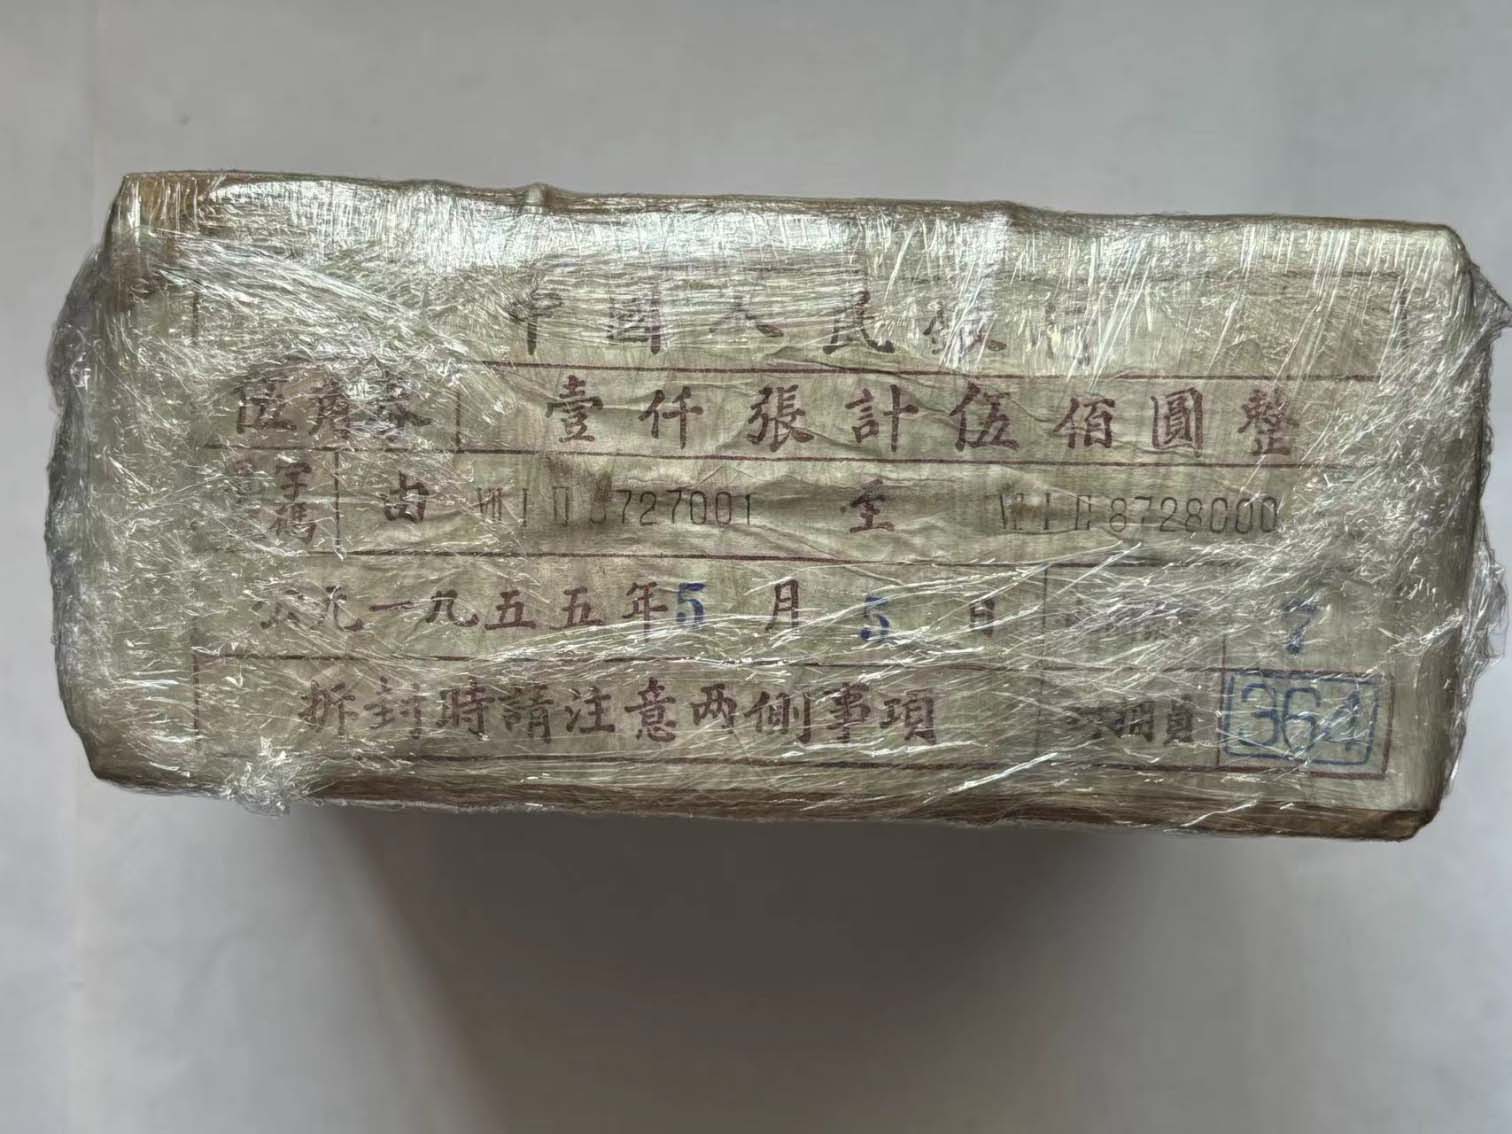 中國人民銀行
伍角券 壹仟張計伍佰圓整
字碼 由 VII I II 8727001 至 VII I II 8728000
公元一九五五年5月5日 7
拆封時請注意两側事項 封捆員 364